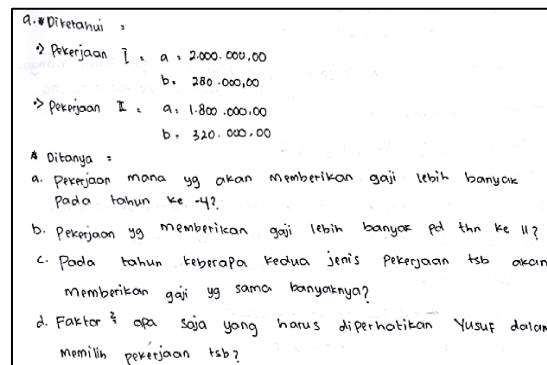 a. * Diketahui :
•> Pekerjaan I : a : 2.000.000,00
b. 280.000,00
•> Pekerjaan II : a : 1.800.000,00
b. 320.000,00
* Ditanya :
a. Pekerjaan mana yg akan memberikan gaji lebih banyak
pada tahun ke -4?
b. Pekerjaan yg memberikan gaji lebih banyak pd thn ke 11?
c. Pada tahun keberapa kedua jenis pekerjaan tsb akan
memberikan gaji yg sama banyaknya?
d. Faktor ² apa saja yang harus diperhatikan Yusuf dalam
memilih pekerjaan tsb?